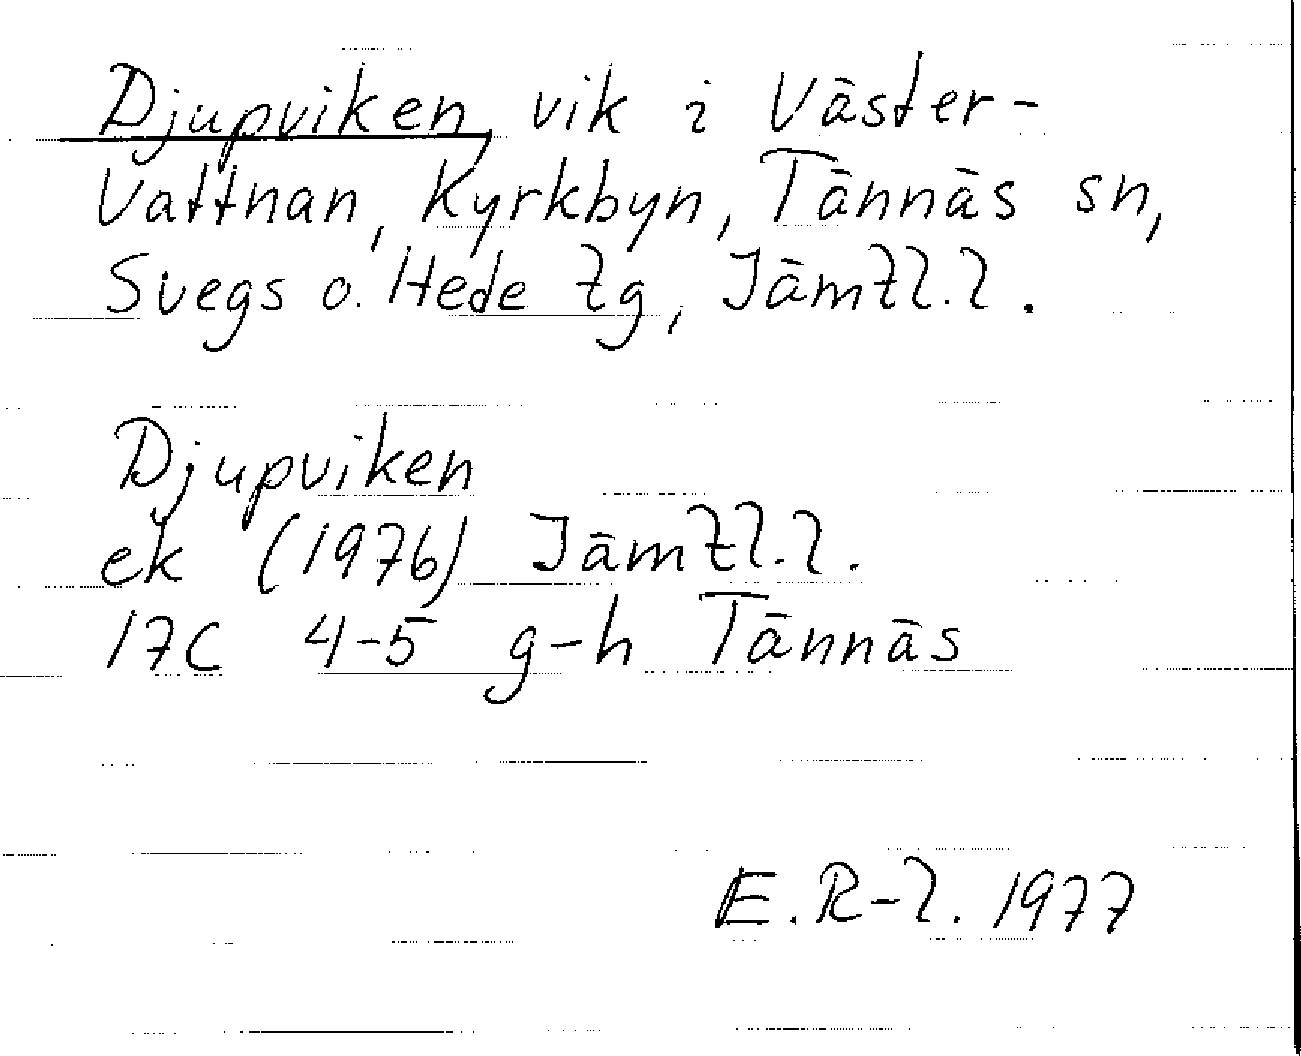 Djupviken, vik i Väster-
Vattnan, Kyrkbyn, Tännäs sn,
Svegs o. Hede tg, Jämtl. l.
Djupviken
ek (1976) Jämtl. l.
17C 4-5 g-h Tännäs
E. R-l. 1977